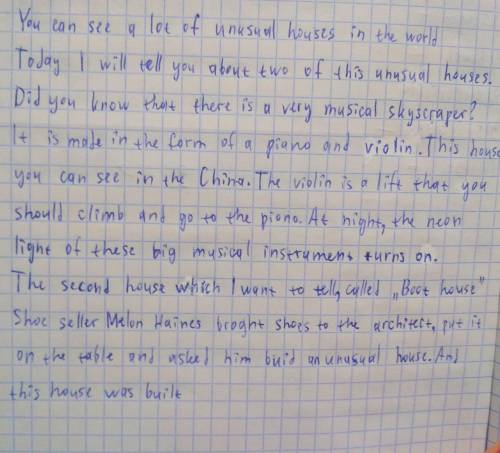 You can see a lot of unusual houses in the world
Today I will tell you about two of this unusual houses.
Did you know that there is a very musical skyscraper?
It is made in the form of a piano and violin. This house
you can see in the China. The violin is a lift that you
should climb and go to the piano. At night, the neon
light of these big musical instrument turns on.
The second house which I want to tell, called „Boot house"
Shoe seller Melon Haines broght shoes to the architect, put it
on the table and asked him buid an unusual house. And
this house was built